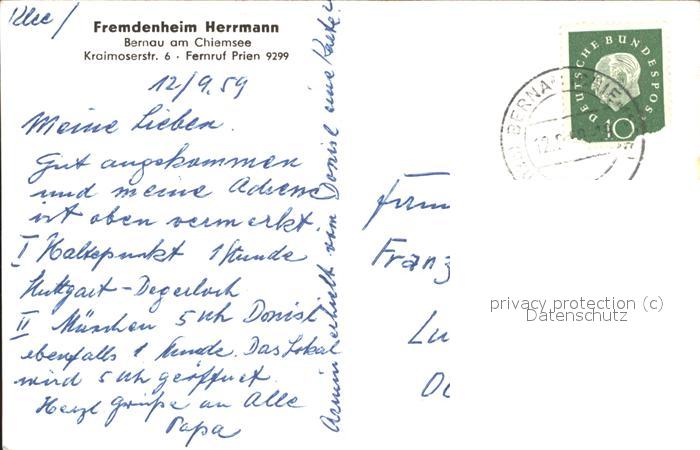 Fremdenheim Herrmann
Bernau am Chiemsee
Kraimoserstr. 6 · Fernruf Prien 9299
12/9.59
Meine Lieben.
Gut angekommen
und meine Adresse
ist oben vermerkt.
I Haltepunkt 1 Stunde
Stuttgart-Degerloch
II München 5 Uh Donisl
ebenfalls 1 Stunde. Das Lokal
wird 5 Uh geöffnet.
Herzl Grüße an Alle
Papa
Armin erhielt vom Donisl eine Karte.
DEUTSCHE BUNDESPOST
10
BERNAU
12.9.59
Firm
Franz
Lu
privacy protection (c)
Datenschutz